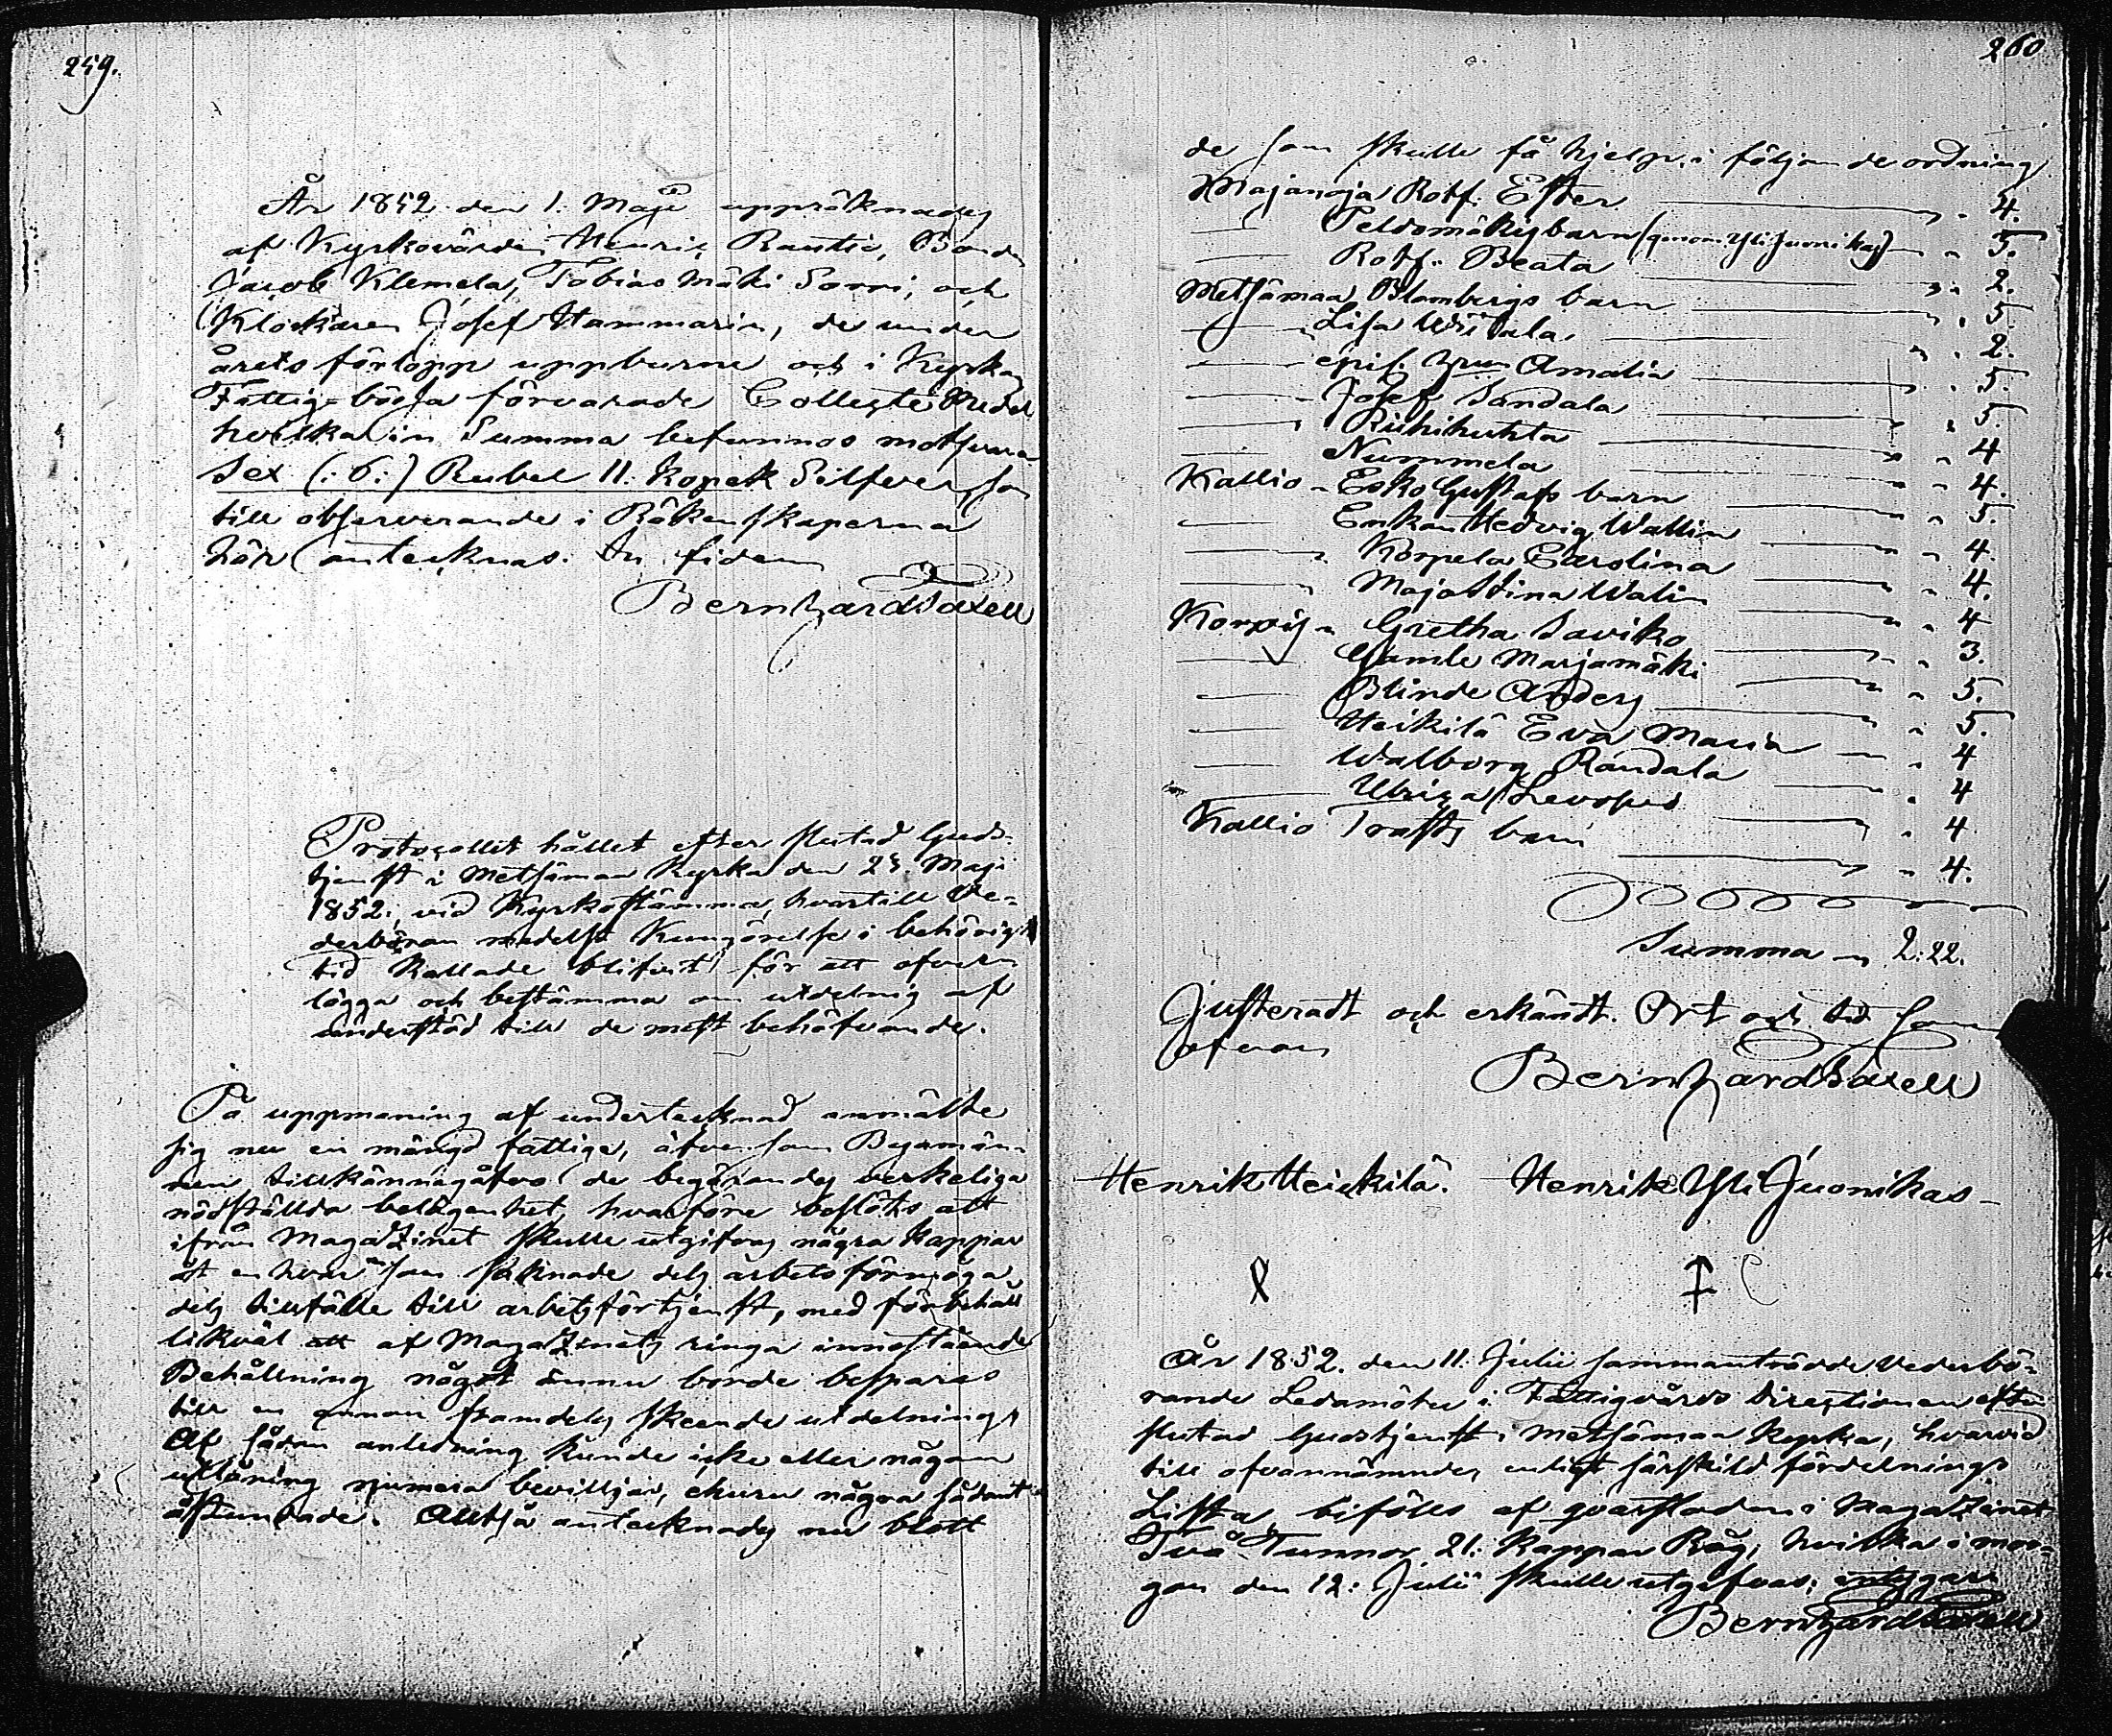 259.
År 1852 den 1. Maji uppräknades
af Kyrkovärden Henric Rautio, Bonden
Jacob Klemela, Tobias Mäki Sorri, och
Klockaren Josef Hammarin, de under
årets förlopp uppburne och i Kyrkans
Fattig-bössa förvarade Collecte Medel
hvilka in Summa befunnos motsvara
Sex (: 6 :) Rubel 11. Kopek Silfver, som
till observerande i Räkenskaperna
här antecknas. In fidem
Bernhard Saxell
Protocollet hållet efter slutad Guds-
tjenst i Metsämaa Kyrka den 23. Maji
1852. vid Kyrkostämma, hvartill Ve-
derbören medelst Kungörelse i behörig
tid kallade blifvit för att öfver
lägga och bestämma om utdelning af
understöd till de mest behöfvande.
På uppmaning af undertecknad anmälte
sig nu en mängd fattige, äfvensom Byamän-
nen tillkännagåfvo de begärandes verkeliga
nödställda belägenhet, hvarföre beslöts att
ifrån Magazinet skulle utgifvas några kappar
åt en hvar som saknade dels arbetsförmåga
dels tillfälle till arbetsförtjenst, med förbehåll
likväl att af Magazinets ringa innestående
Behållning något ännu borde besparas
till en annan framdeles skeende utdelning.
Af sådan anledning kunde icke eller någon
utlåning numera beviljas, ehuru några sådant
åstundade. Alltså antecknades nu blott
260
de som skulle få hjelp i följande ordning
Majanoja Rotf. Ester 4.
Peldomäkis barn (genom Yli Juonikas) 5.
Rotf. Beata 2.
Metsämaa Blombergs barn 5
Lisa Uusitala 2.
epis. hrun Amalia 5.
Josef Sandala 5.
Riihihuhta 4
Nummela 4.
Kallio Esko Gustafs barn 5.
Enkan Hedvig Wallin 4.
Korpela Carolina 4.
Maja Stina Walin 4
Korpis Gretha Saviko 3.
Gamle Marjamäki 5.
Blinde Anders 5.
Heikilä Eva Maria 4
Walborg Randala 4
Ulrica 4
Kallio barn 4.
Summa 2:22.
Justeradt och erkändt. Ort och tid som
ofvan
Bernhard Saxell
Henrik Heickilä. Henrik Yli Juonikas
År 1852. den 11. Julii sammanträdde vederbö-
rande Ledamöter i Fattigvårds Directionen efter
slutad Gudstjenst i Metsämaa Kyrka, hvarvid
till ofvannämndes enligt särskild fördelnings
Lista bifölls af qvarstoden i Magazinet
Två Tunnor 21. Kappar Råg, hvilka i mor-
gon den 12. Julii skulle utgifvas;
Bernhard Saxell